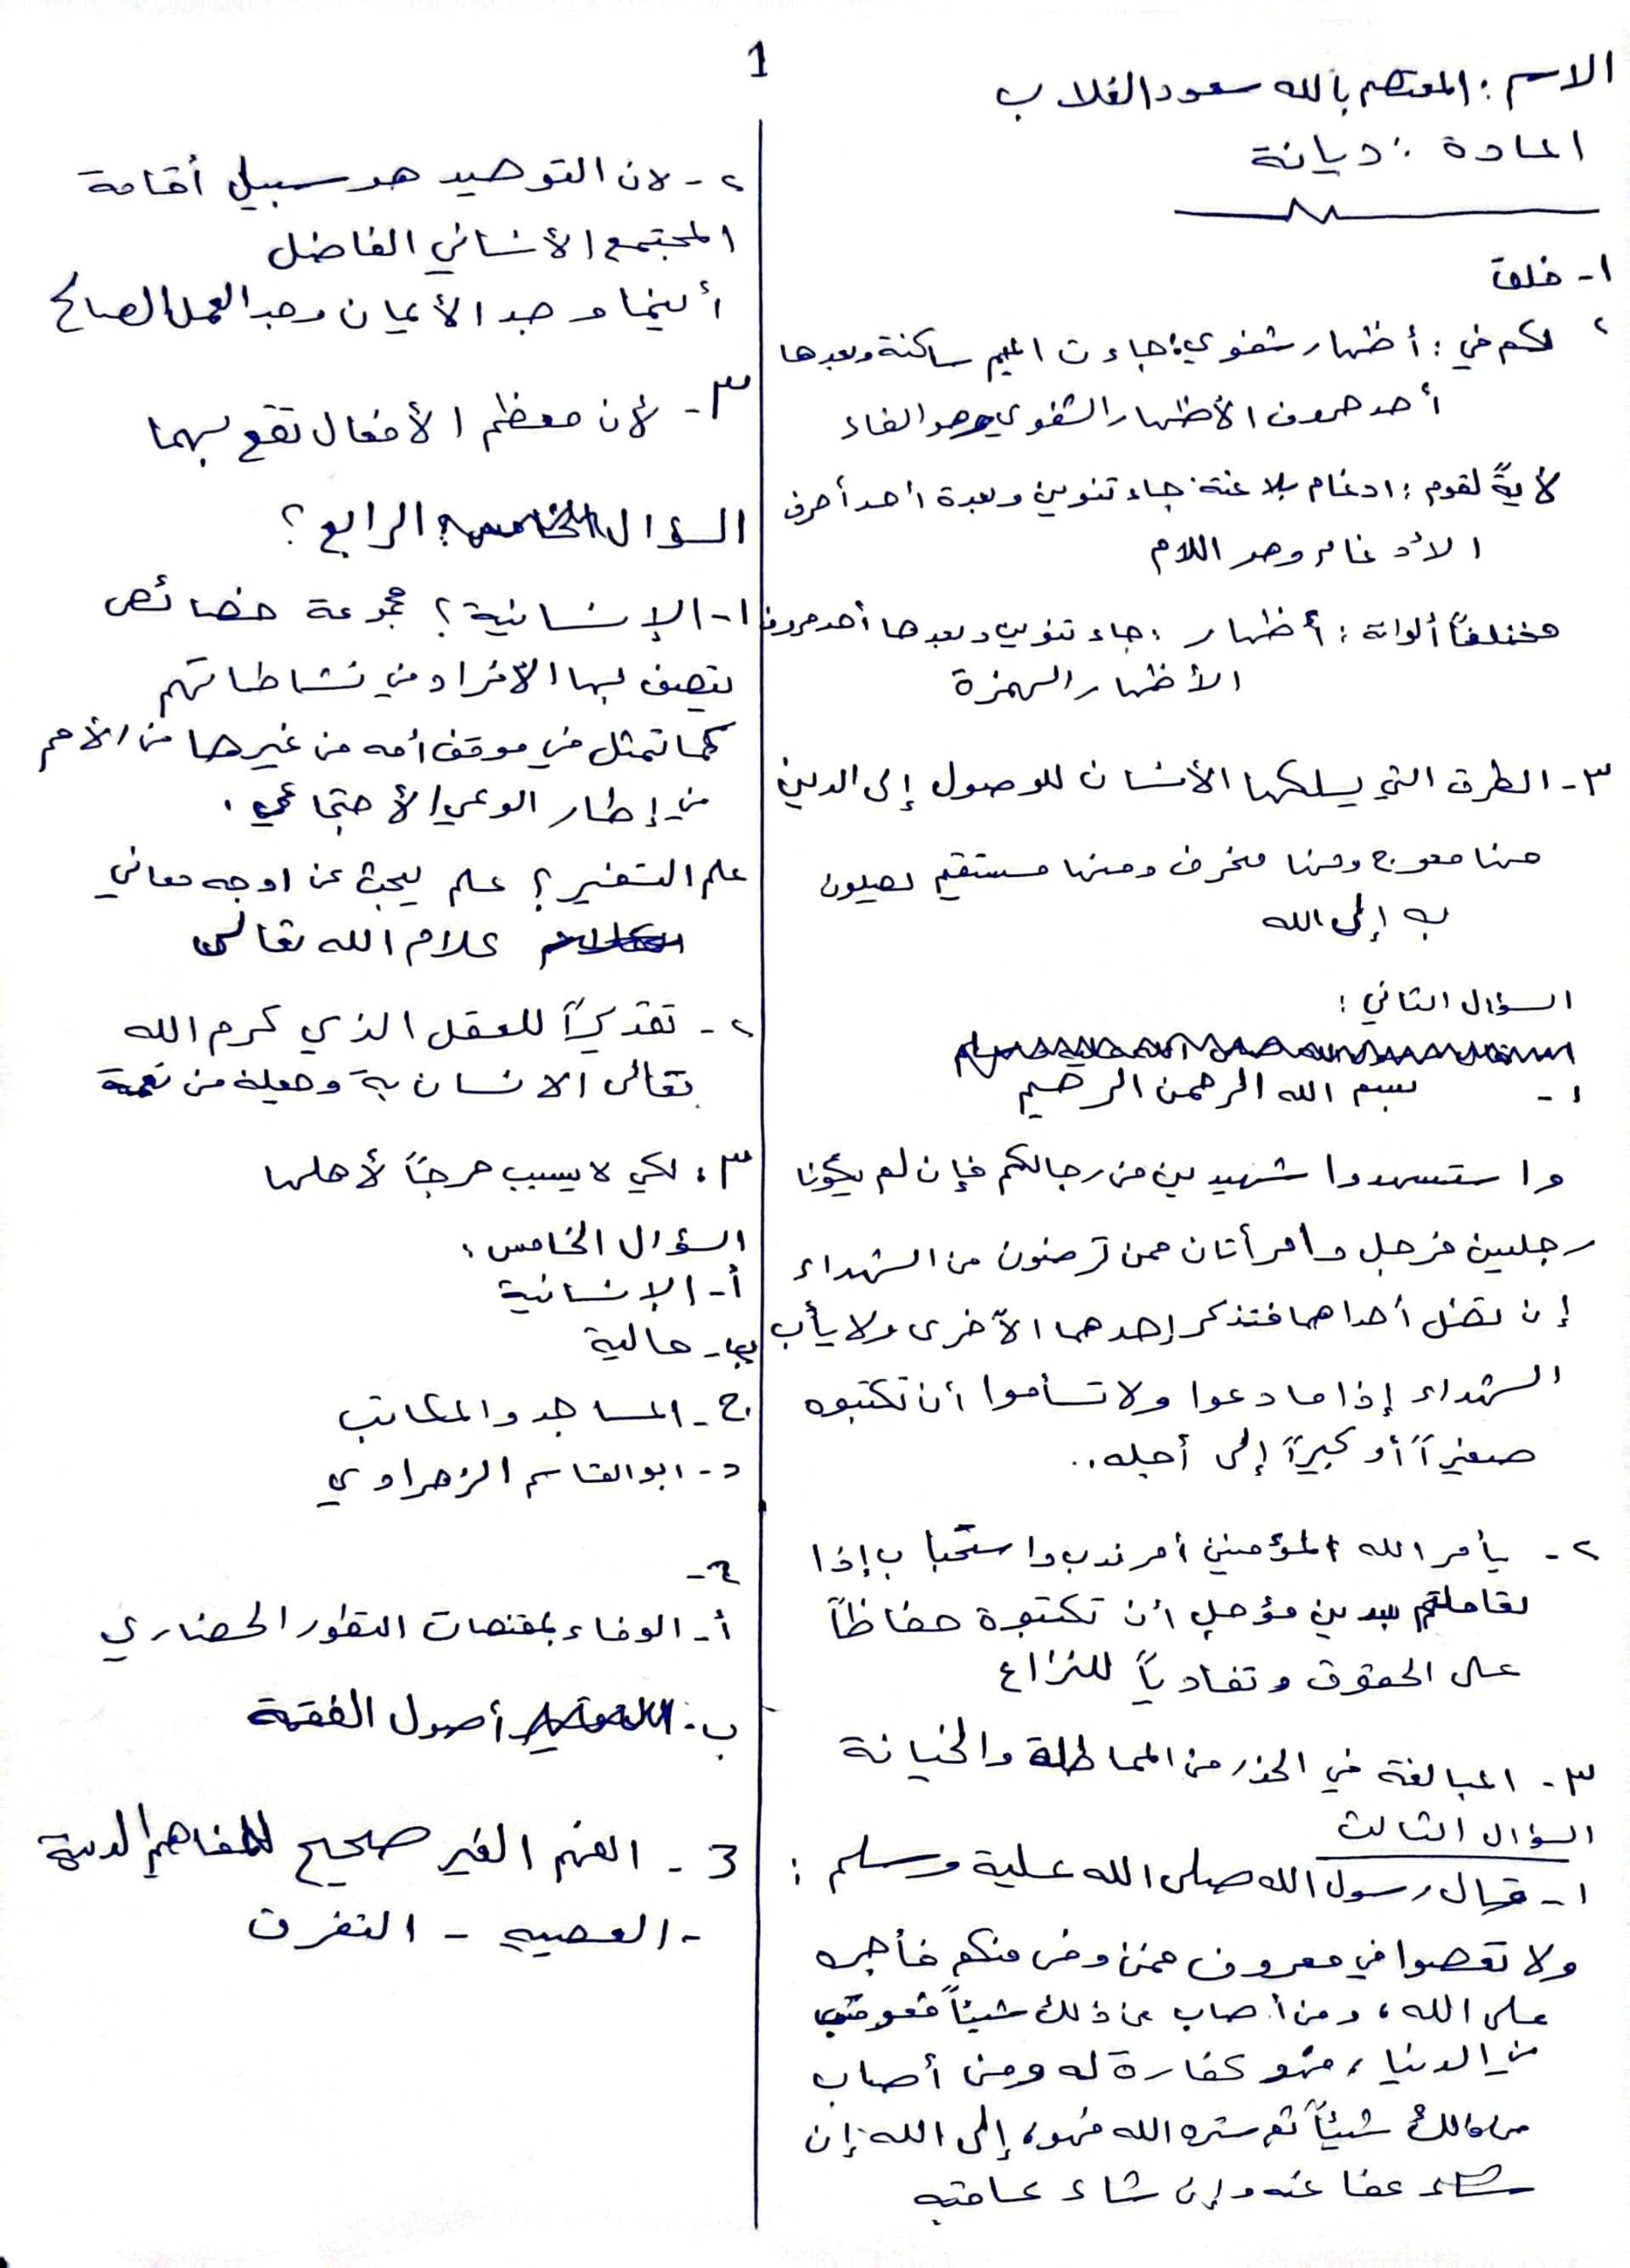 1
الاسم : المعتصم بالله سعود الغلاب
المادة : ديانة
١- خلق
٢ لكم في : أظهار شفوي : جاءت الميم ساكنة وبعدها
أحد حروف الأظهار الشفوي وهو الفاء
لأيةً لقوم : ادغام بلا غنة . جاء تنوين وبعدة أحد أحرف
الأدغام وهو اللام
مختلفاً ألوانة : أظهار : جاء تنوين وبعدها أحد حروف
الأظهار الهمزة
٣- الطرق التي يسلكها الأنسان للوصول إلى الدين
منا معوج ومنا منحرف ومنها مستقيم يصلون
به إلى الله
السؤال الثاني :
١- بسم الله الرحمن الرحيم
واستسهدوا شهيدين من رجالكم فإن لم يكونا
رجليين فرجل وامرأتان ممن ترضون من الشهداء
إن تضل أحداهما فتذكر إحدهما الآخرى ولا يأب
الشهداء إذا ما دعوا ولا تسأموا أن تكتبوه
صغيراً أو كبيراً إلى أجله..
٢- يأمر الله المؤمنين أمر ندب واستحباب إذا
تعاملتم بدين مؤجل أن تكتبوة حفاظاً
على الحقوق وتفادياً للنزاع
٣- المبالغة في الحذر من المماطلة والخيانة
السؤال الثالث
١- قال رسول الله صلى الله علية وسلم :
ولا تعصوا في معروف فمن وفى منكم فأجره
على الله ، ومن أصاب من ذلك شيئاً فعوقب
في الدنيا ، فهو كفارة له ومن أصاب
من ذالك شيئاً ثم ستره الله فهو إلى الله . إن
شاء عفا عنه وإن شاء عاقبه
٢- لان التوحيد هو سبيل أقامة
المجتمع الأنساني الفاضل
أينما وجد الأيمان وجد العمل الصالح
٣- لأن معظم الأفعال تقع بهما
السؤال الرابع ؟
١- الإنسانية ؟ مجموعة خصائص
يتصف بها الأفراد في نشاطاتهم
كما تمثل في موقف أمه من غيرها من الأمم
في إطار الوعي الأجتماعي .
علم التفسير ؟ علم يبحث عن اوجه معاني
كلام الله تعالى
٢- تقديراً للعقل الذي كرم الله
تعالى الانسان بة وجعلة من نعمة
٣: لكي لا يسبب حرجاً لأهلها
السؤال الخامس :
أ- الإنسانية
ب- حالية
ج- المساجد والمكاتب
د- ابو القاسم الزهراوي
٢-
أ- الوفاء بمقتضات التطور الحضاري
ب- أصول الفقة
3 - الفهم الغير صحيح للمفاهيم الدينية
- العصبيه - التفرق